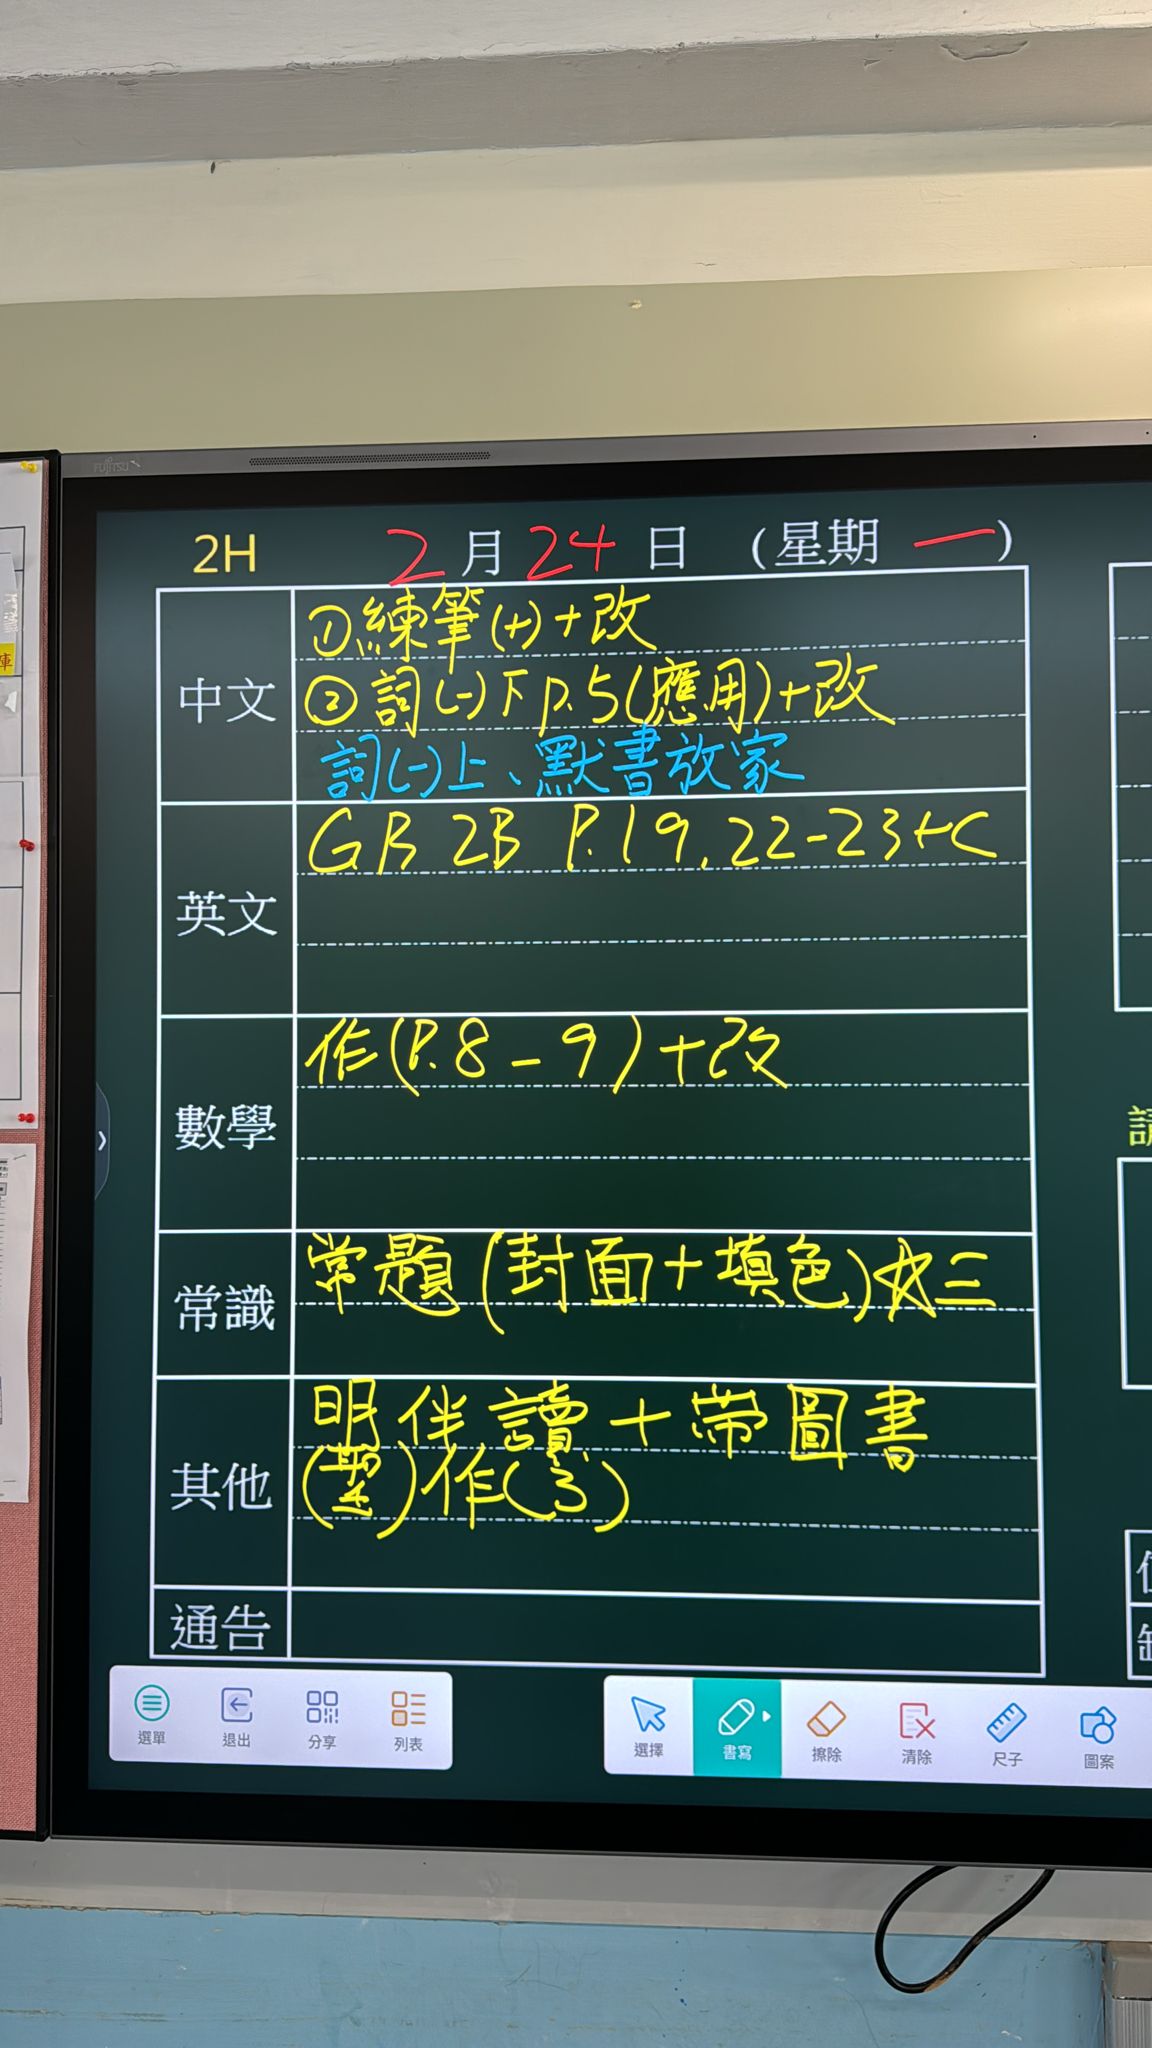 FUJITSU
2H 2月24日 (星期一)
中文
①練筆(十)+改
②詞(一)下 p.5(應用)+改
詞(一)上、默書放家
英文
GB 2B P.19, 22-23+C
數學
作(P.8-9)+改
常識
常題(封面+填色)☆三
其他
明伴讀+帶圖書
(聖)作(3)
通告
選單 退出 分享 列表 選擇 書寫 擦除 清除 尺子 圖案